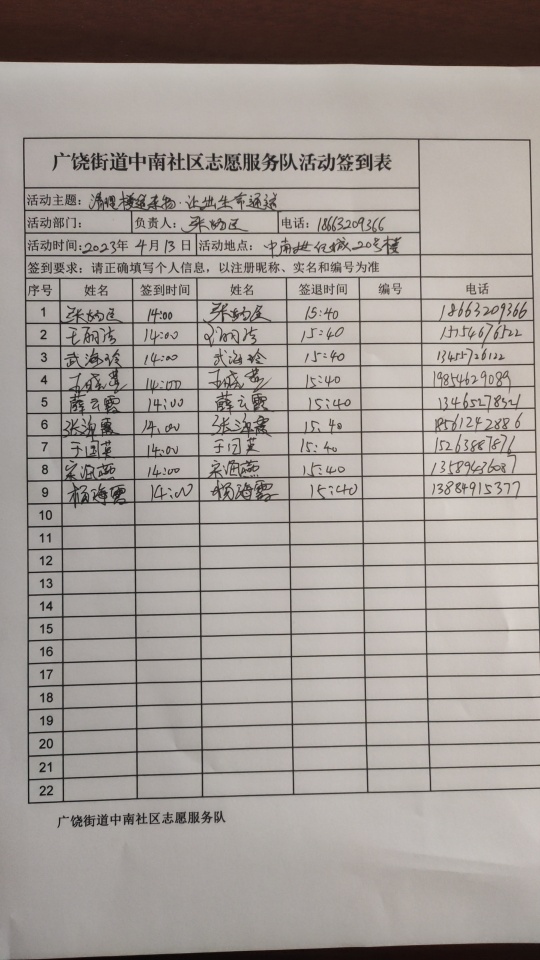 广饶街道中南社区志愿服务队活动签到表
活动主题：清理楼道杂物·让出生命通道
活动部门： 负责人： 电话：18663209366
活动时间：2023年 4月 13日 活动地点：中南世纪城20号楼
签到要求：请正确填写个人信息，以注册昵称、实名和编号为准
序号 姓名 签到时间 姓名 签退时间 编号 电话
1 14:00 15:40 18663209366
2 14:00 15:40
3 武海玲 14:00 武海玲 15:40 13455726122
4 14:00 15:40 19854629089
5 薛云霞 14:00 薛云霞 15:40 13465278521
6 14:00 15:40 18561242886
7 于国英 14:00 于国英 15:40 15263887876
8 14:00 15:40 13589436087
9 杨海霞 14:00 杨海霞 15:40 13884915377
10
11
12
13
14
15
16
17
18
19
20
21
22
广饶街道中南社区志愿服务队